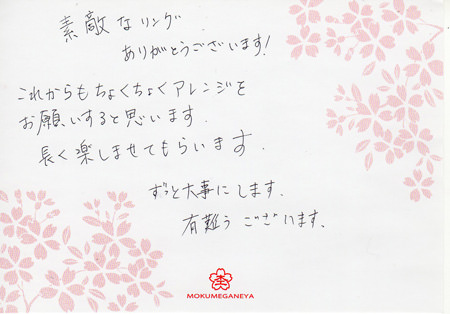 素敵なリング
ありがとうございます!
これからもちょくちょくアレンジを
お願いすると思います.
長く楽しませてもらいます.
ずっと大事にします.
有難うございます.
MOKUMEGANEYA